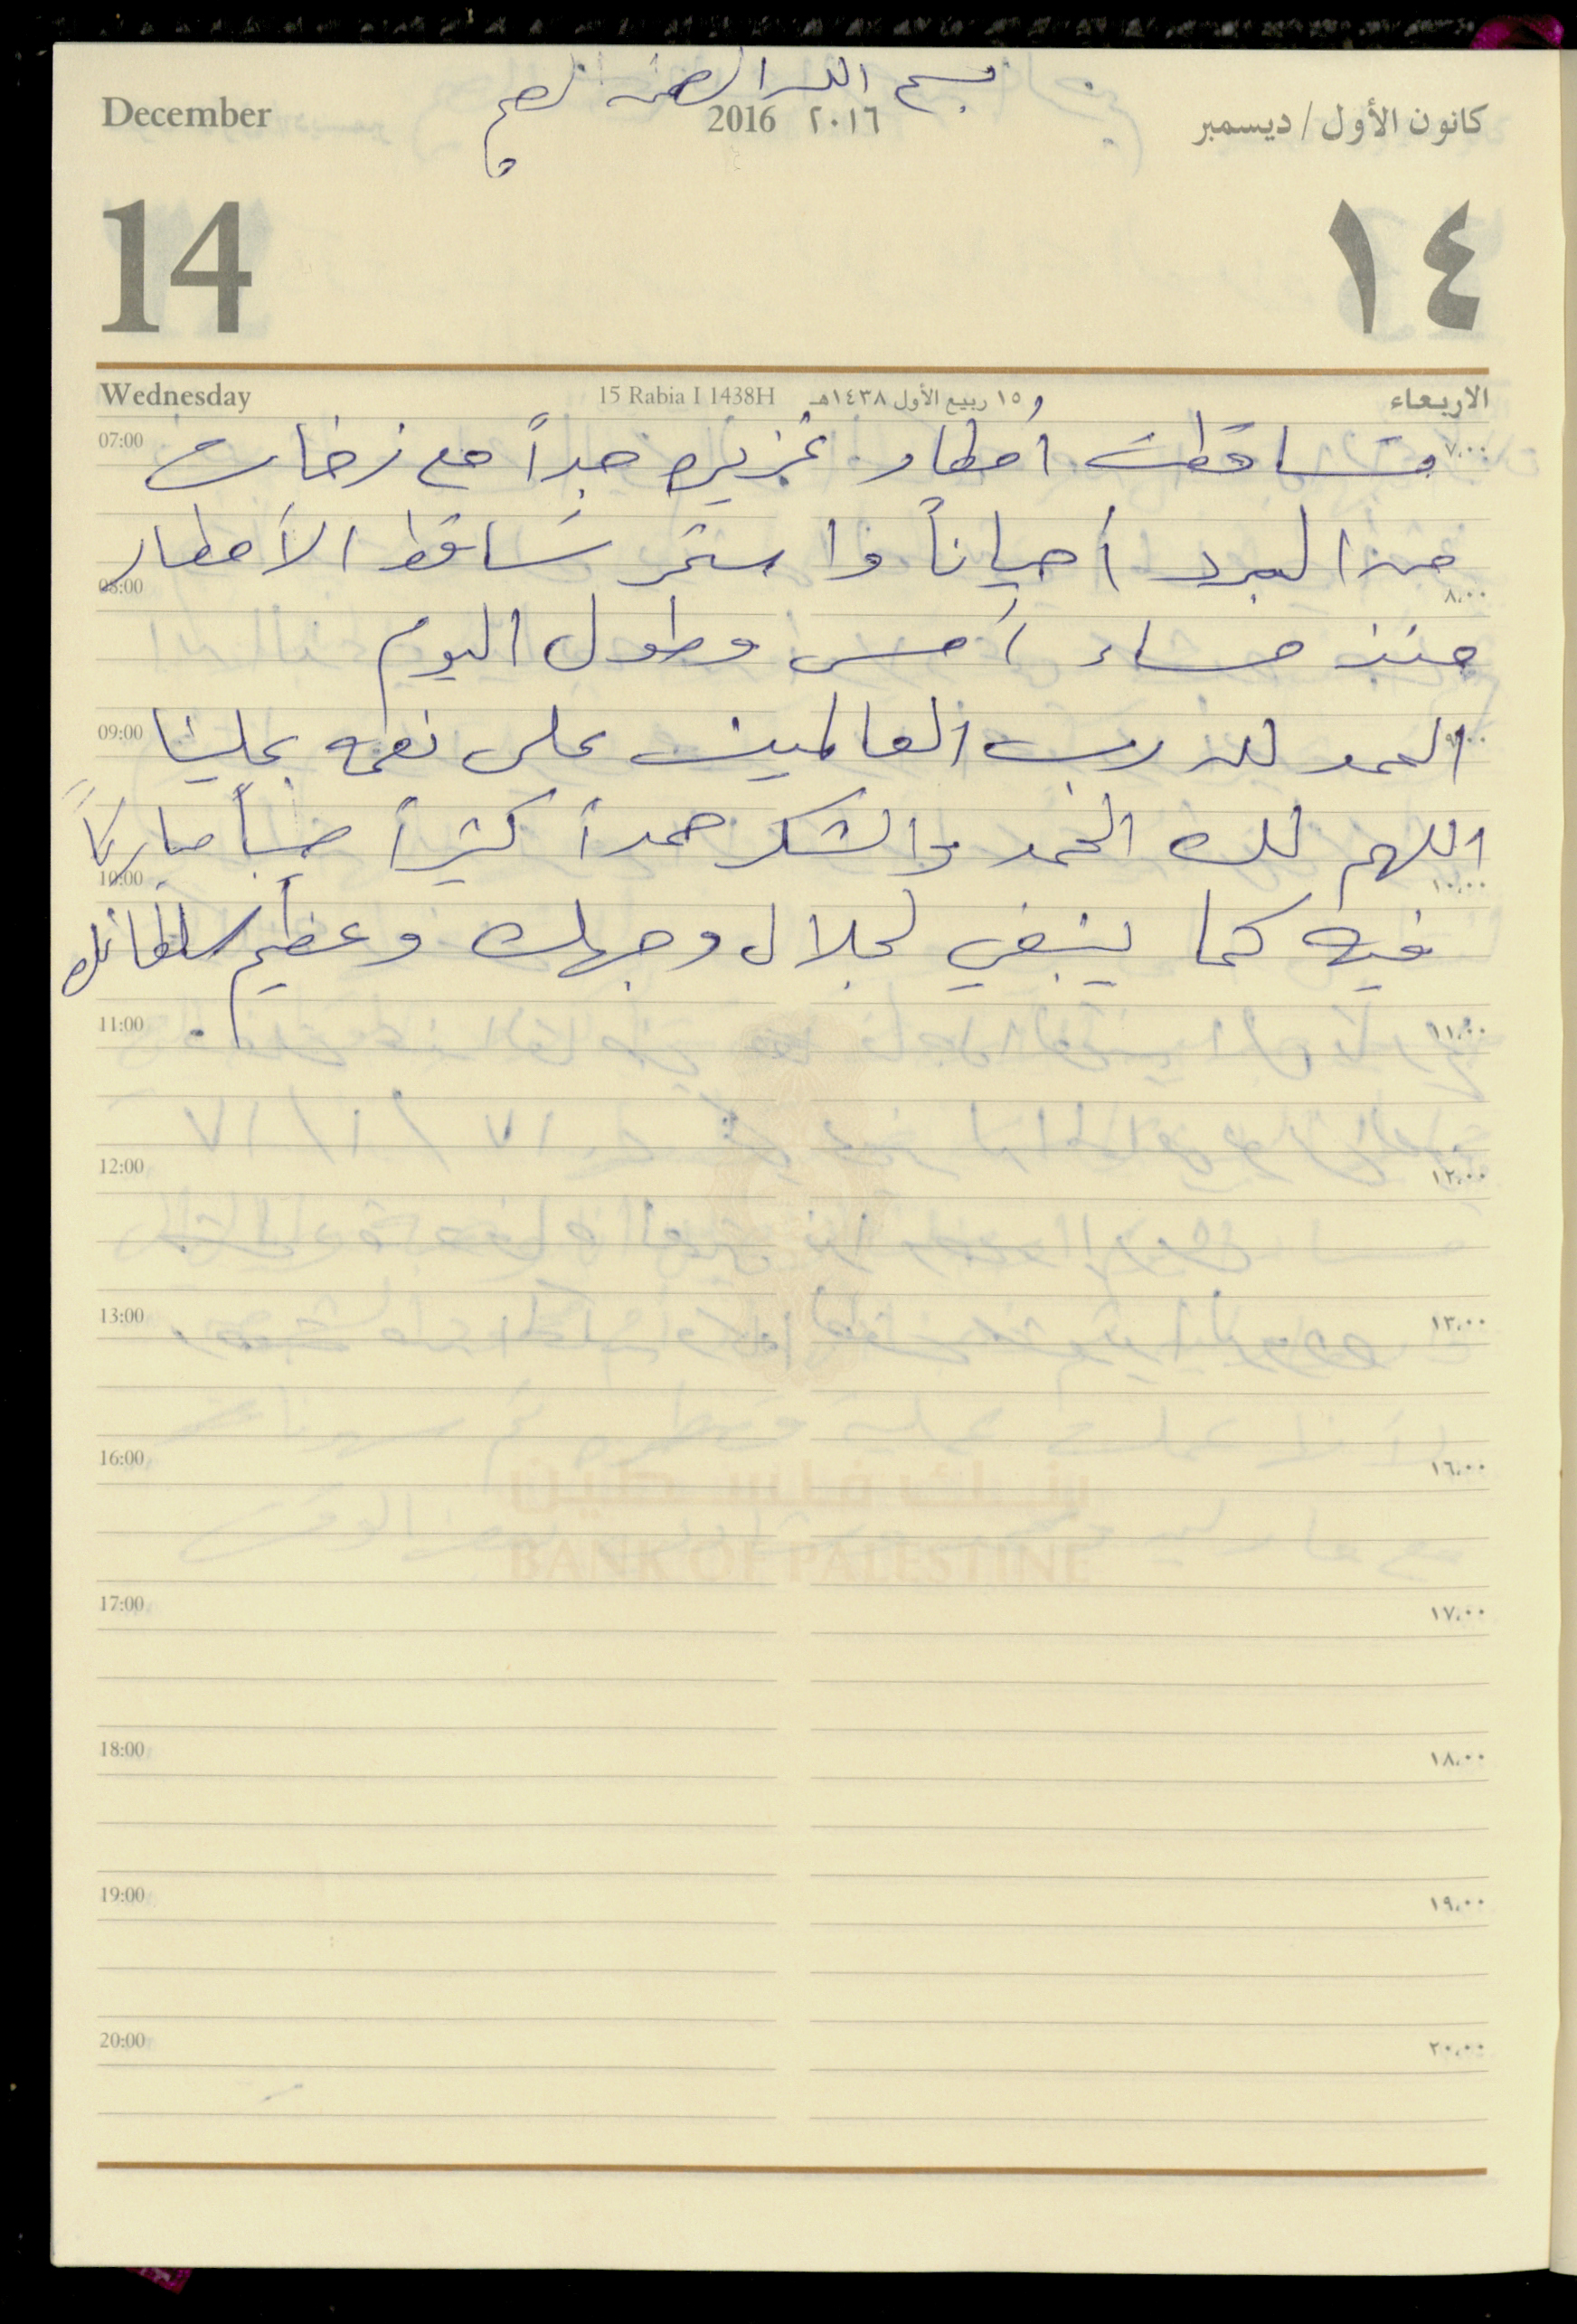 بسم الله الرحمن الرحيم
December 2016 ٢٠١٦ كانون الأول / ديسمبر
14 ١٤
Wednesday 15 Rabia I 1438H ١٥ ربيع الأول ١٤٣٨هـ الاربعاء
07:00 تساقطت أمطار غزيره جداً مع زخات ٧،٠٠
من البرد أحياناً واستمر تساقط الأمطار
08:00 ٨،٠٠
منذ مساء أمس وطول اليوم
09:00 الحمد لله رب العالمين على نعمه علينا ٩،٠٠
اللهم لك الحمد والشكر حمداً كثيراً طيباً مباركاً
10:00 ١٠،٠٠
فيه كما ينبغي لجلال وجهك وعظيم سلطانك .
11:00 ١١،٠٠
12:00 ١٢،٠٠
13:00 ١٣،٠٠
16:00 ١٦،٠٠
بنك فلسطين
BANK OF PALESTINE
17:00 ١٧،٠٠
18:00 ١٨،٠٠
19:00 ١٩،٠٠
20:00 ٢٠،٠٠